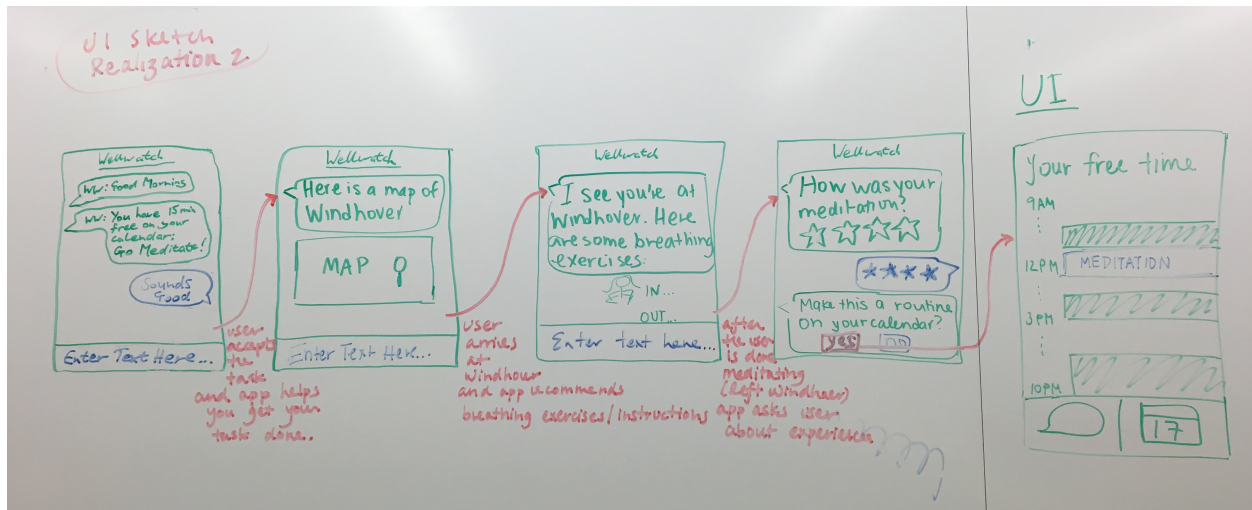 UI Sketch
Realization 2
Wellwatch
WW: Good Morning
WW: You have 15 min
free on your
calendar;
Go Meditate!
Sounds
Good
Enter Text Here...
user
accepts
the
task
and app helps
you get your
task done..
Wellwatch
Here is a map of
Windhover
MAP
Enter Text Here...
user
arrives
at
windhover
and app recommends
breathing exercises/instructions
Wellwatch
I see you're at
Windhover. Here
are some breathing
exercises:
IN...
OUT...
Enter text here...
after
the user
is done
meditating
(left windhover)
app asks user
about experience
Wellwatch
How was your
meditation?
Make this a routine
on your calendar?
yes no
UI
Your free time
9AM
12PM MEDITATION
3PM
10PM
17